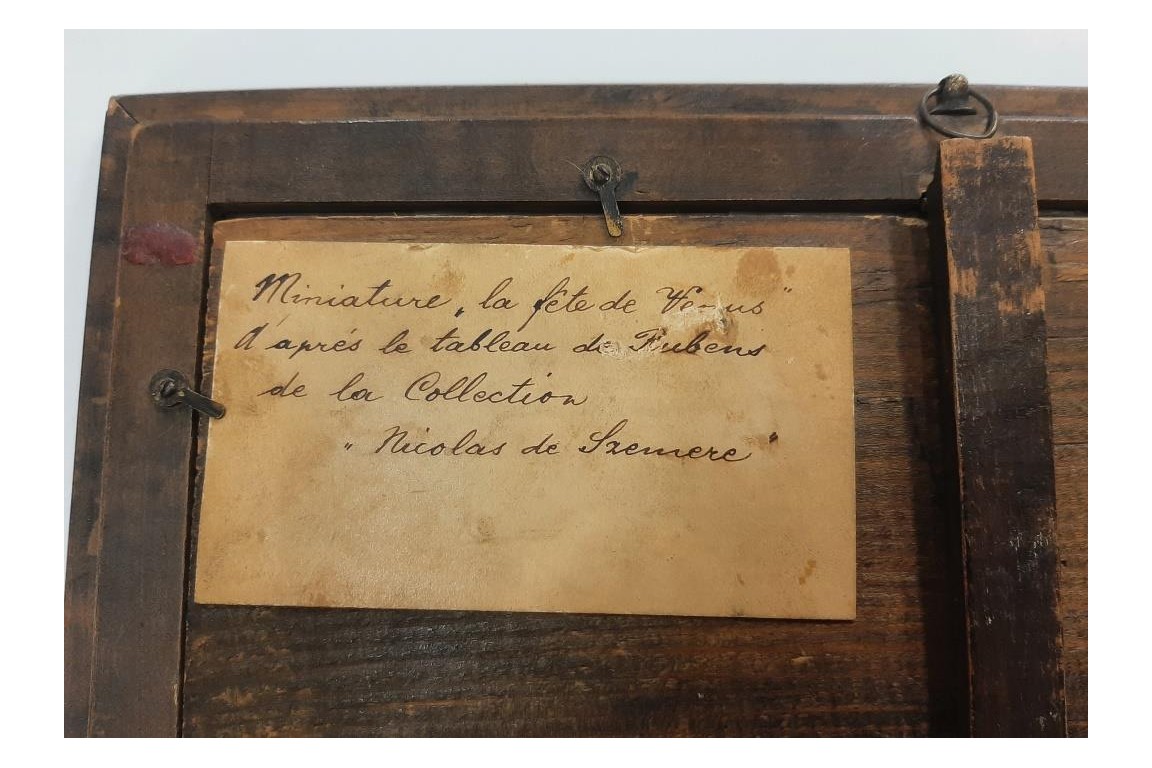 Miniature „la fête de Venus"
d'aprés le tableau de Rubens
de la Collection
"Nicolas de Szemere"